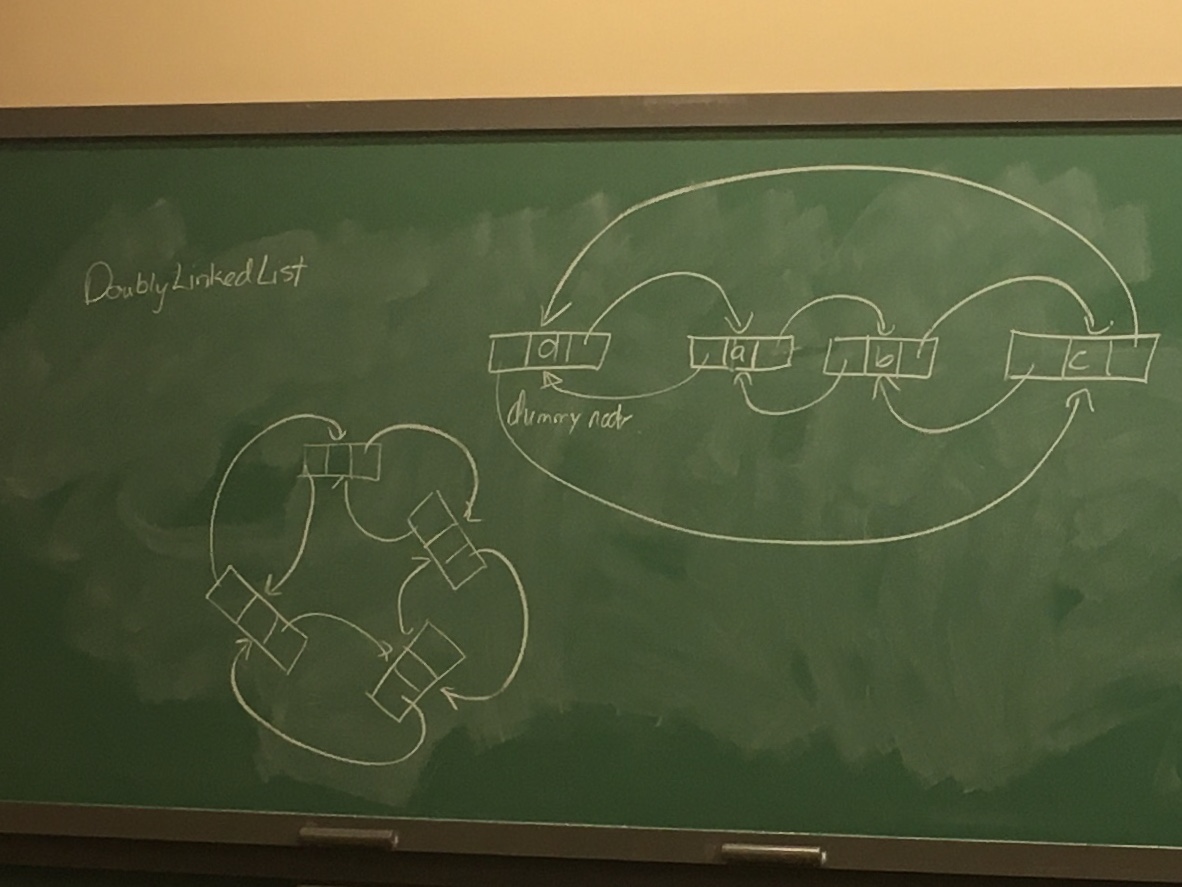 DoublyLinkedList
d a b c
dummy node